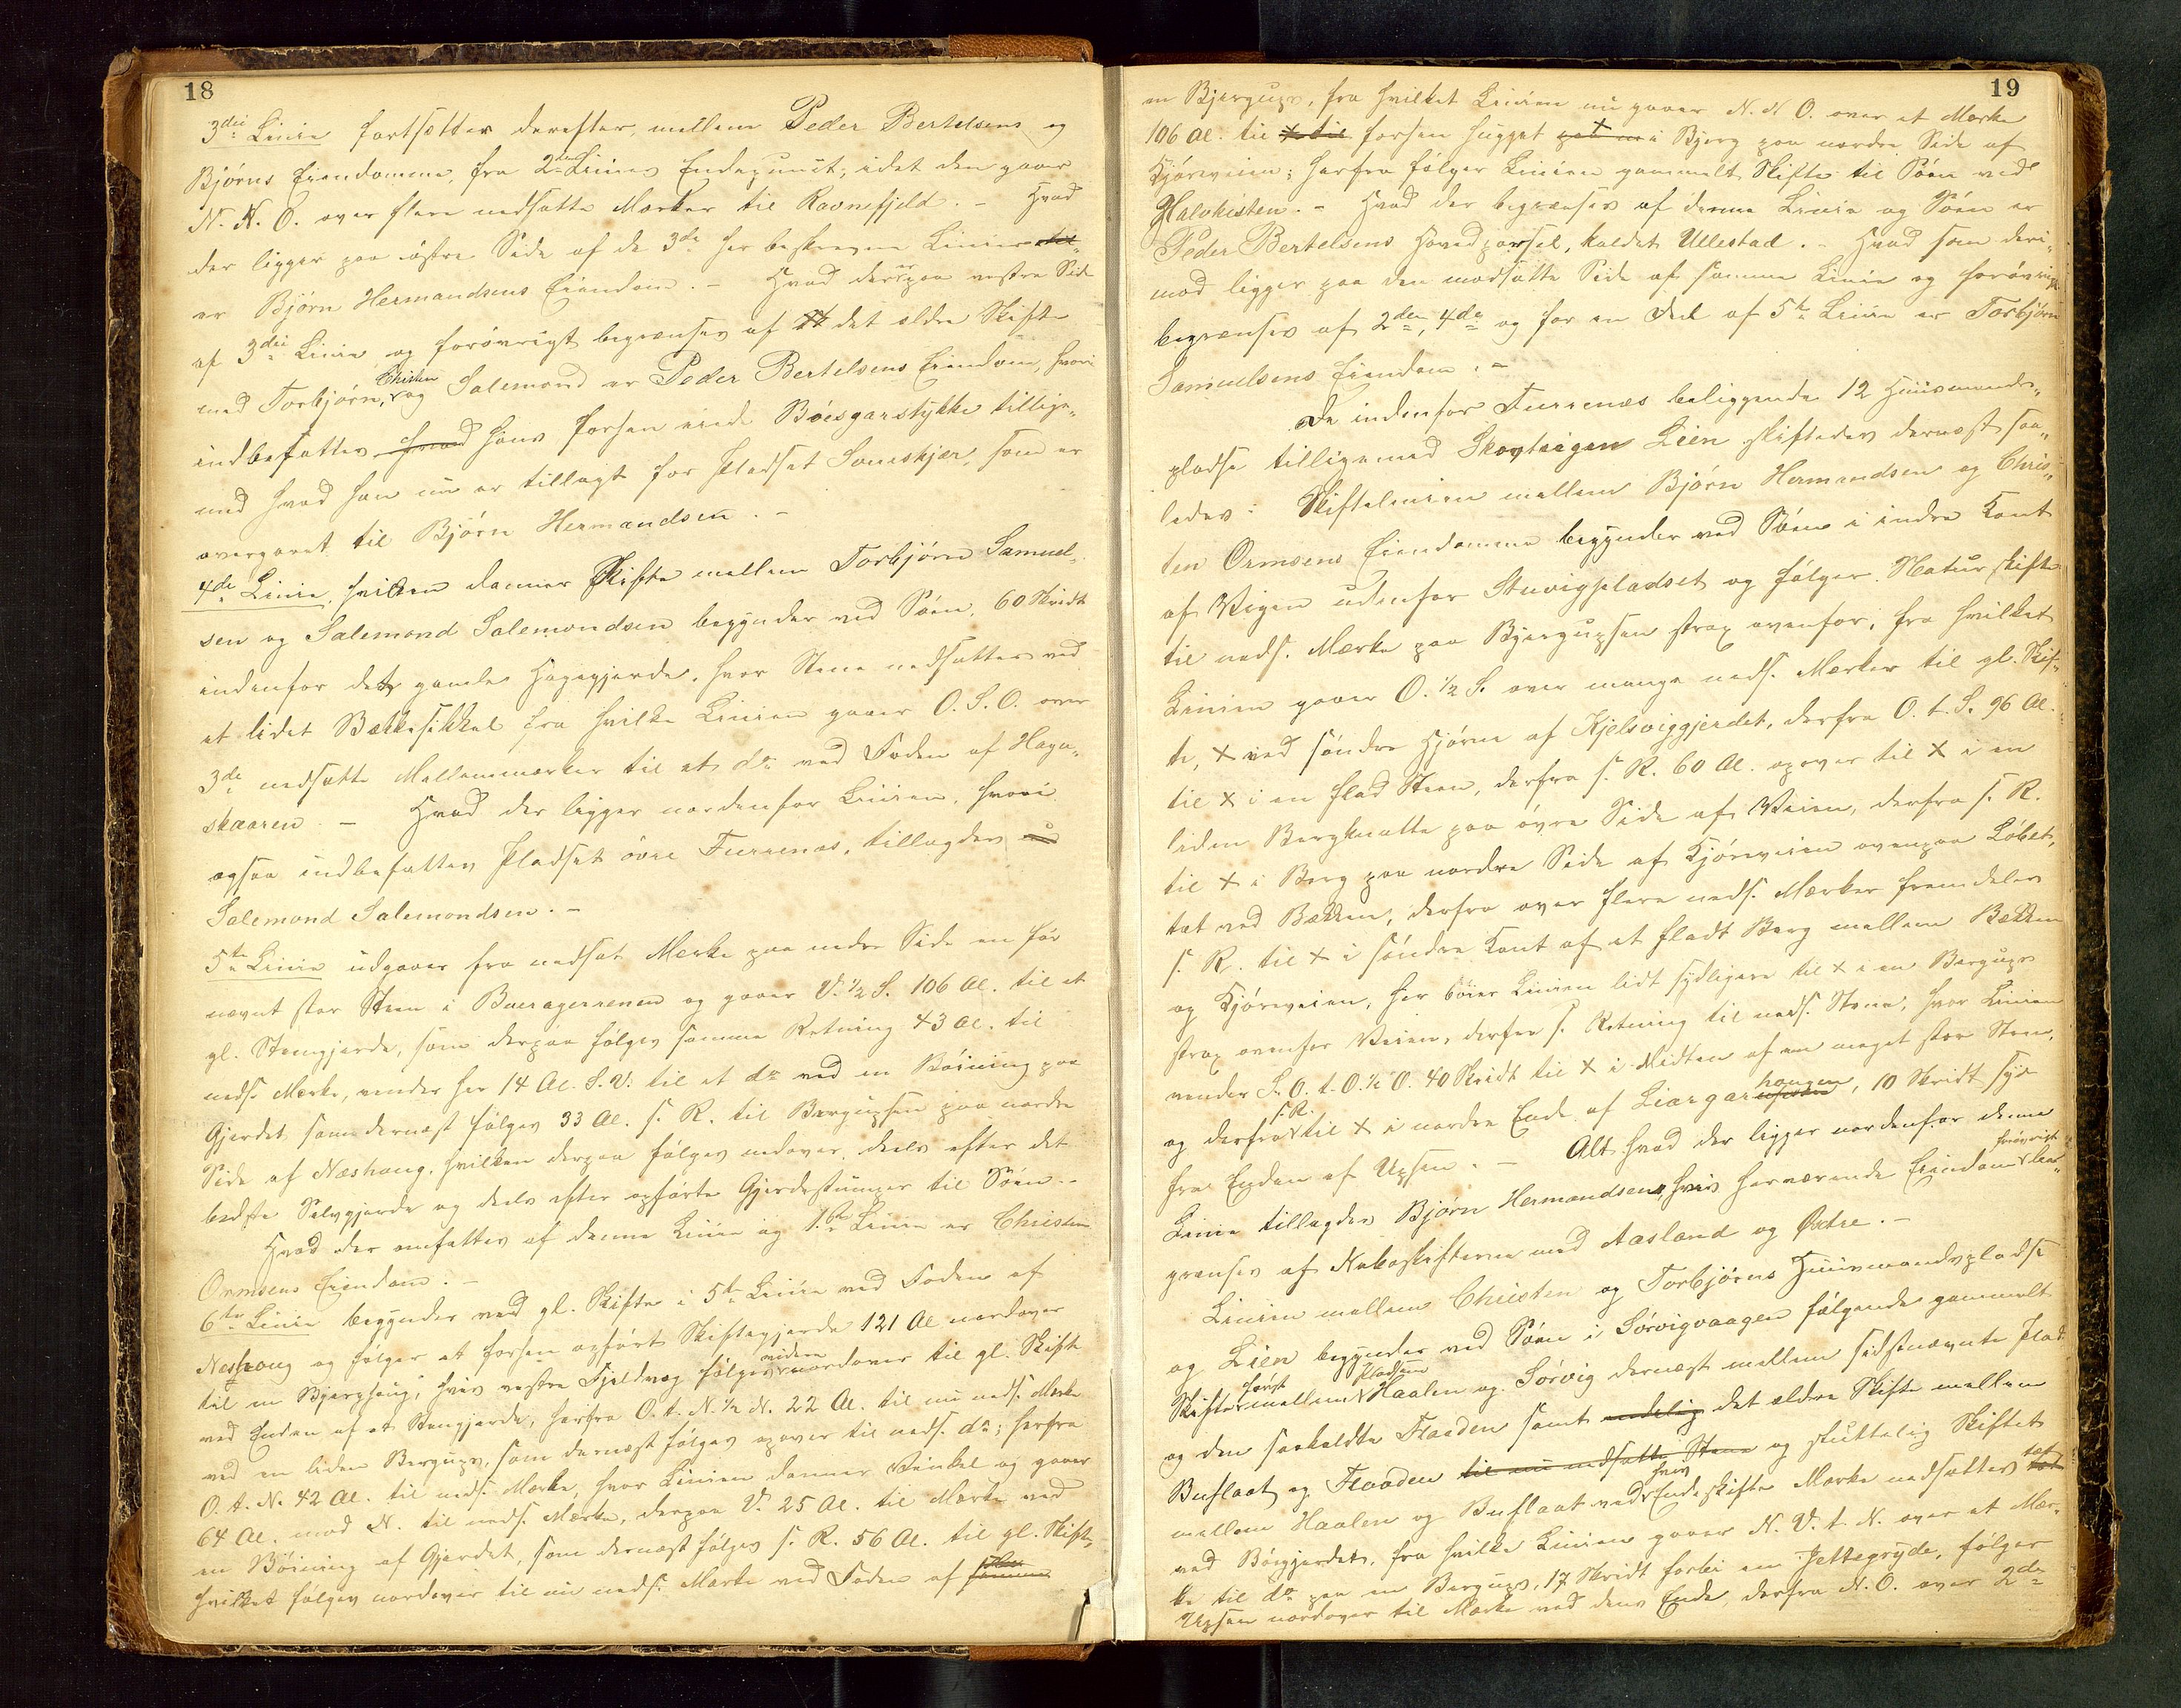 18
3die Linie fortsætter derefter, mellem Peder Bertelsens og
Bjørns Eiendomme, fra 2den Linies Endepunct, idet den gaaer
N. N. O. over flere nedsatte Mærker til Ravnefjeld. – Hvad
der ligger paa østre Side af de 3de her beskrevne Linier til
er Bjørn Hermandsens Eiendom. – Hvad der er paa vestre Side
af 3die Linie og forøvrigt begrænses af det ældre Skifte
med Torbjørn, Christen og Salemond er Peder Bertelsens Eiendom, hvori
indbefattes hvad hans forhen eiede Bøesgarstykke tillige-
med hvad han nu er tillagt for Pladset Sameskjær, som er
overgaaet til Bjørn Hermandsen. –
4de Linie, hvilken danner Skifte mellem Torbjørn Samuel-
sen og Salemond Salemondsen begynder ved Søen, 60 Skridt
indenfor det gamle Hagegjerde, hvor Stene nedsattes ved
et lidet Bækkesikkel fra hvilke Linien gaaer O. S. O. over
3de nedsatte Mellemmærker til et do ved Foden af Haga-
skaaren – Hvad der ligger nordenfor Linien, hvori
ogsaa indbefattes Pladset øvre Furrenæs, tillagdes
Salemond Salemondsen. –
5te Linie udgaaer fra nedsat Mærke paa nedre Side en før
nævnt stor Steen i Bueragerrenen og gaaer V. ½ S. 106 Al. til et
gl. Stengjerde, som derpaa følges samme Retning 43 Al. til
neds. Mærke, vender her 14 Al. S. V. til et do ved en Bøining paa
Gjerdet som dernæst følges 33 Al. s. R. til Bergupsen paa nordre
Side af Næshaug, hvilken derpaa følges nedover, deels efter det
bedste Selvgjerde og deels efter opførte Gjerdestumper til Søen. –
Hvad der omfattes af denne Linie og 1ste Linie er Christen
Ormsens Eiendom. –
6te Linie begynder ved gl. Skifte i 5te Linie ved Foden af
Neshaug og følger et forhen opført Skiftegjerde 121 Al. nordover
til en Bjerghaug, hvis vestre Fjeldvæg følges videre nordover til gl. Skifte
ved Enden af et Stengjerde, herfra O. t. N. ½ N. 22 Al. til nu neds. Mærke
ved en liden Bergups, som dernæst følges opover til neds. do; herfra
O. t. N. 42 Al. til neds. Mærke, hvor Linien danner Vinkel og gaaer
64 Al. mod N. til neds. Mærke, derpaa V. 25 Al. til Mærke ved
en Bøining af Gjerdet, som dernæst følges s. R. 56 Al. til gl. Skifte,
hvilket følges nordover til nu neds. Mærke ved Foden af
19
en Bjergups, fra hvilket Linien nu gaaer N. N. O. over et Mærke
106 Al. til forhen hugget x i Bjerg paa nordre Side af
Kjøreveien; herfra følger Linien gammelt Skifte til Søen ved
Halvkisten. – Hvad der begrænses af denne Linie og Søen er
Peder Bertelsens Hovedparsel, kaldet Ullestad. – Hvad som deri-
mod ligger paa den modsatte Side af samme Linie og forøvrigt
begrænses af 2den, 4de og for en Deel af 5te Linie er Torbjørn
Samuelsens Eiendom. –
De indenfor Furrenæs beliggende 12 Huusmands-
pladse tilligemed Skovteigen Lien skiftedes dernæst saa-
ledes: Skiftelinien mellem Bjørn Hermandsen og Chris-
ten Ormsens Eiendomme begynder ved Søen i indre Kant
af Vigen udenfor Stuvigpladset og følger Naturskifte
til neds. Mærke paa Bjergupsen strax ovenfor, fra hvilket
Linien gaaer O. ½ S. over mange neds. Mærker til gl. Skif-
te, x ved søndre Hjørne af Kjelsviggjerdet, derfra O. t. S. 96 Al.
til x i en flad Steen, derfra s. R. 60 Al. opover til x i en
liden Bergknatte paa øvre Side af Veien, derfra s. R.
til x i Berg paa nordre Side af Kjøreveien ovenpaa Løbet,
tæt ved Bækken, derfra over flere neds. Mærker fremdeles
s. R. til x i søndre Kant af et fladt Berg mellem Bækken
og Kjøreveien, her bøier Linien lidt sydligere til x i en Bergups
strax ovenfor Veien, derfra s. Retning til neds. Stene, hvor Linien
vender S. O. t. O. ½ O. 40 Skridt til x i Midten af en meget stor Steen,
og derfra s. R. til x i nordre Ende af Liargarhaugen, 10 Skridt syd
fra Enden af Upsen. – Alt hvad der ligger nordenfor denne
Linie tillagdes Bjørn Hermandsen, hvis herværende Eiendom forøvrigt be-
grænses af Naboskifterne med Aasland og Østre. –
Linien mellem Christen og Torbjørns Huusmandspladse
og Lien begynder ved Søen i Sørvigvaagen følgende gammelt
Skifte først mellem Pladsene Haalen og Sørvig dernæst mellem sidstnævnte Plads
og den saakaldte Flaaden samt endelig det ældre Skifte mellem
Buflaat og Flaaden til nu nedsatte Stene og sluttelig Skiftet
mellem Haalen og Buflaat ved hvis Endeskifte Mærke nedsattes tæt
ved Bøgjerdet, fra hvilke Linien gaaer N. V. t. N. over et Mær-
ke til do paa en Bergups, 17 Skridt forbi en Jettegryde, følger
Upsen nordover til Mærke ved dens Ende, derfra N. O. over 2de